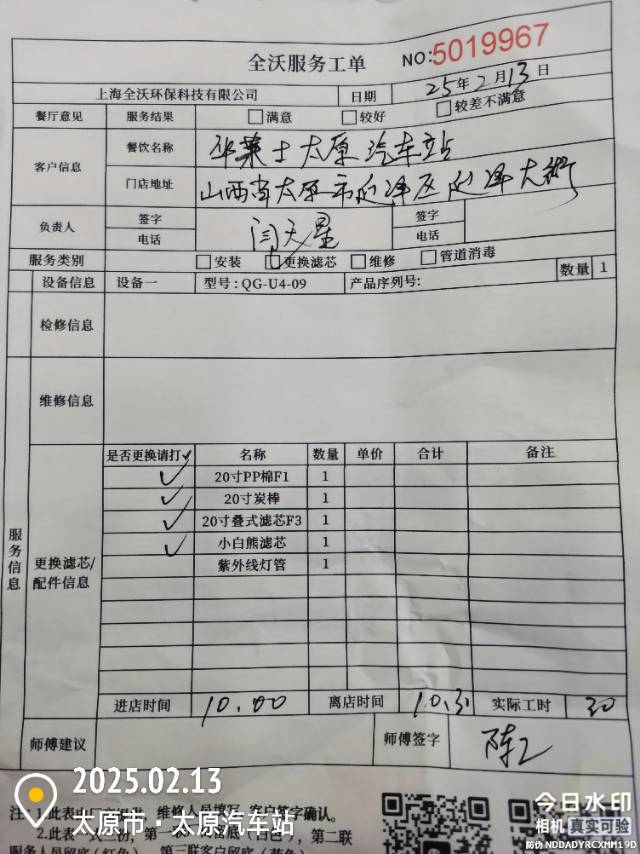 全沃服务工单
NO:5019967
上海全沃环保科技有限公司 日期 25年2月13日
餐厅意见 服务结果 □满意 □较好 □较差不满意
客户信息 餐饮名称 华莱士太原汽车站
门店地址 山西省太原市迎泽区迎泽大街
负责人 签字 闫天星 签字
电话 电话
服务类别 □安装 □更换滤芯 □维修 □管道消毒
设备信息 设备一 型号:QG-U4-09 产品序列号: 数量 1
检修信息
维修信息
服务信息
更换滤芯/
配件信息
是否更换请打✓ 名称 数量 单价 合计 备注
✓ 20寸PP棉F1 1
✓ 20寸炭棒 1
✓ 20寸叠式滤芯F3 1
✓ 小白熊滤芯 1
紫外线灯管 1
进店时间 10.00 离店时间 10.3 实际工时 30
师傅建议 师傅签字
2025.02.13
太原市·太原汽车站
今日水印
相机 真实可验
防伪 NDDADYRCXMM19D